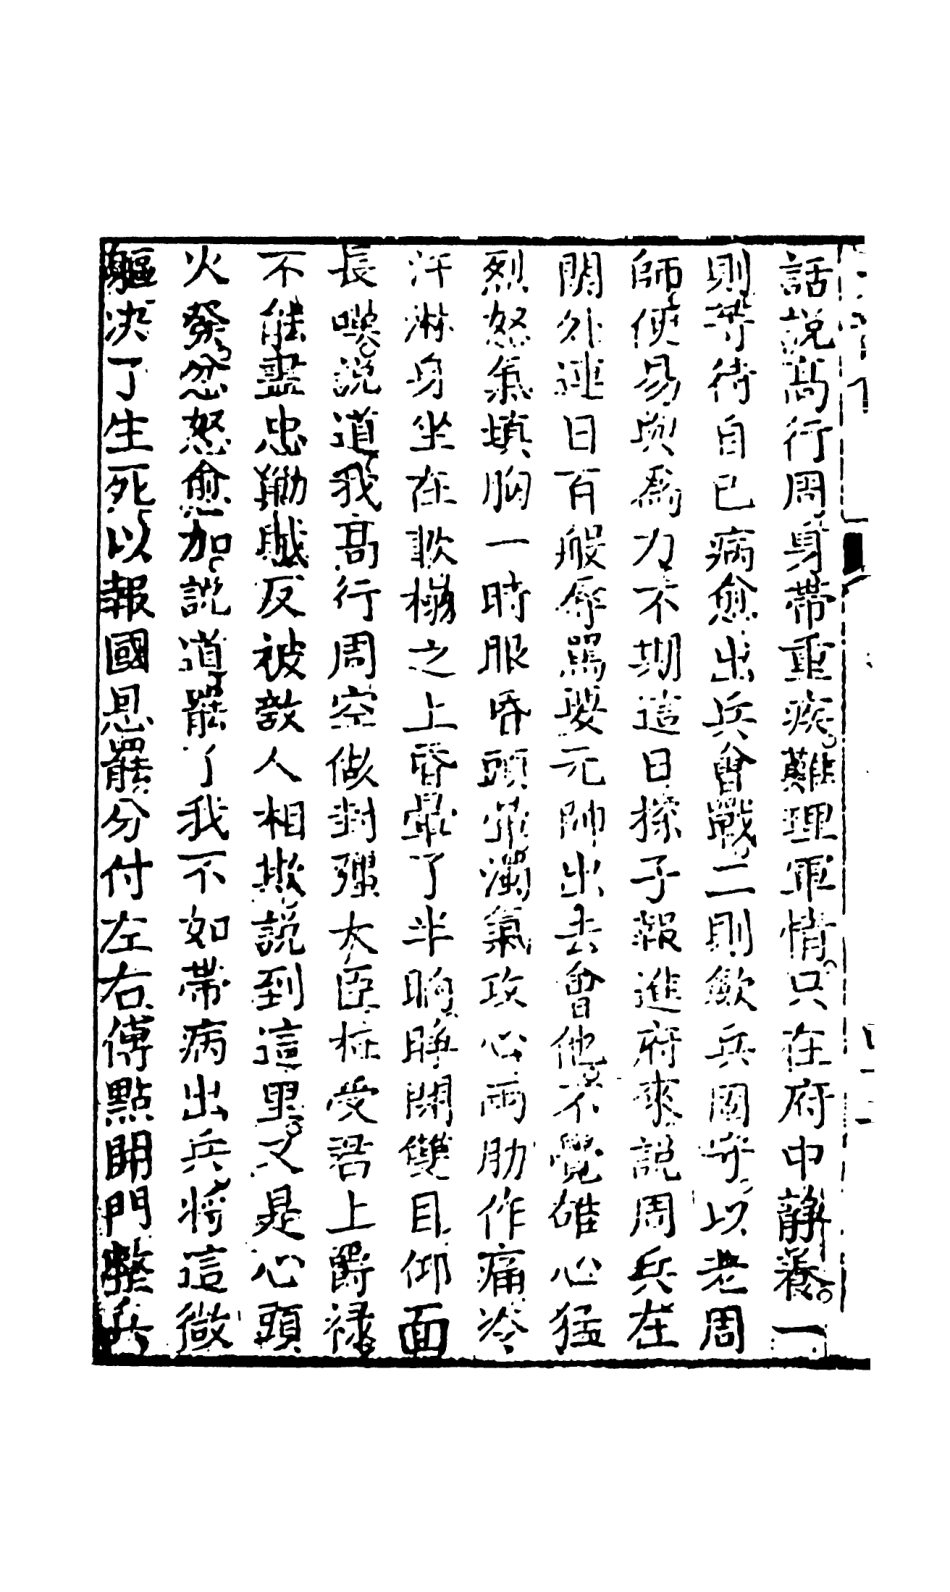 話說高行周身帶重疾難理軍情只在府中靜養一
則等待自己病愈出兵會戰二則歛兵固守以老周
師使易與爲力不期這日探子報進府來說周兵在
関外連日百般辱罵要元帥出去會他不覺雄心猛
烈怒氣塡胸一時眼昏頭暈濁氣攻心兩肋作痛冷
汗淋身坐在軟榻之上昏暈了半晌睜開雙目仰面
長嘆說道我高行周空做封疆大臣枉受君上爵祿
不能盡忠勦賊反被敵人相欺説到這里又是心頭
火發忿怒愈加說道罷了我不如帶病出兵將這微
軀决了生死以報國恩罷分付左右傳點開門整兵